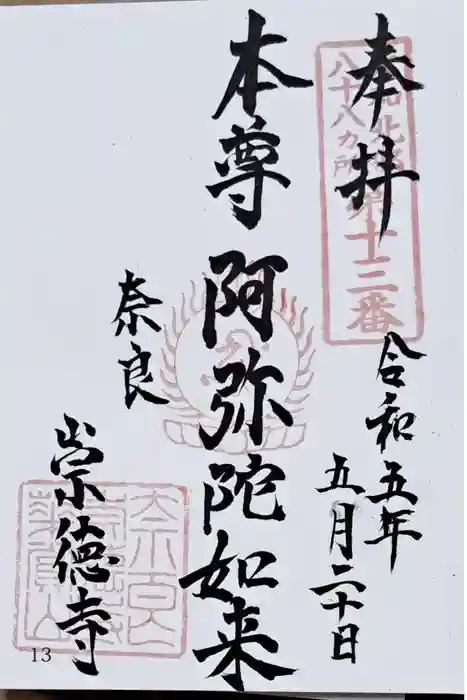 奉拝
大和北部
八十八カ所
第十三番
令和五年
五月二十日
本尊 阿弥陀如来
奈良
崇徳寺
13